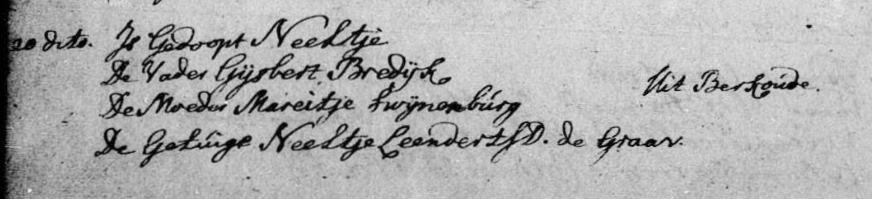 20 dito. Is Gedoopt Neeltje
De Vader Gijsbert Bredijk
Uit Berkoude.
De Moeder Mareitje Zwijnenburg
De Getuige Neeltje Leendert SD. de Graav.